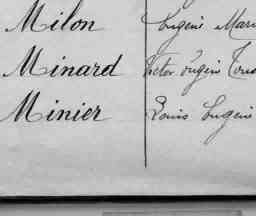 Milon Eugène Mari
Minard Victor Eugène
Minier Louis Eugène